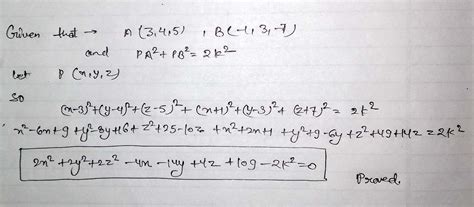 Given that → A(3,4,5) , B(-1,3,-7)
and PA²+PB² = 2k²
let P(x,y,z)
So
(x-3)²+(y-4)²+(z-5)²+(x+1)²+(y-3)²+(z+7)² = 2k²
x²-6x+9+y²-8y+16+z²+25-10z+x²+2x+1+y²+9-6y+z²+49+14z=2k²
2x²+2y²+2z²-4x-14y+4z+109-2k²=0
Proved.